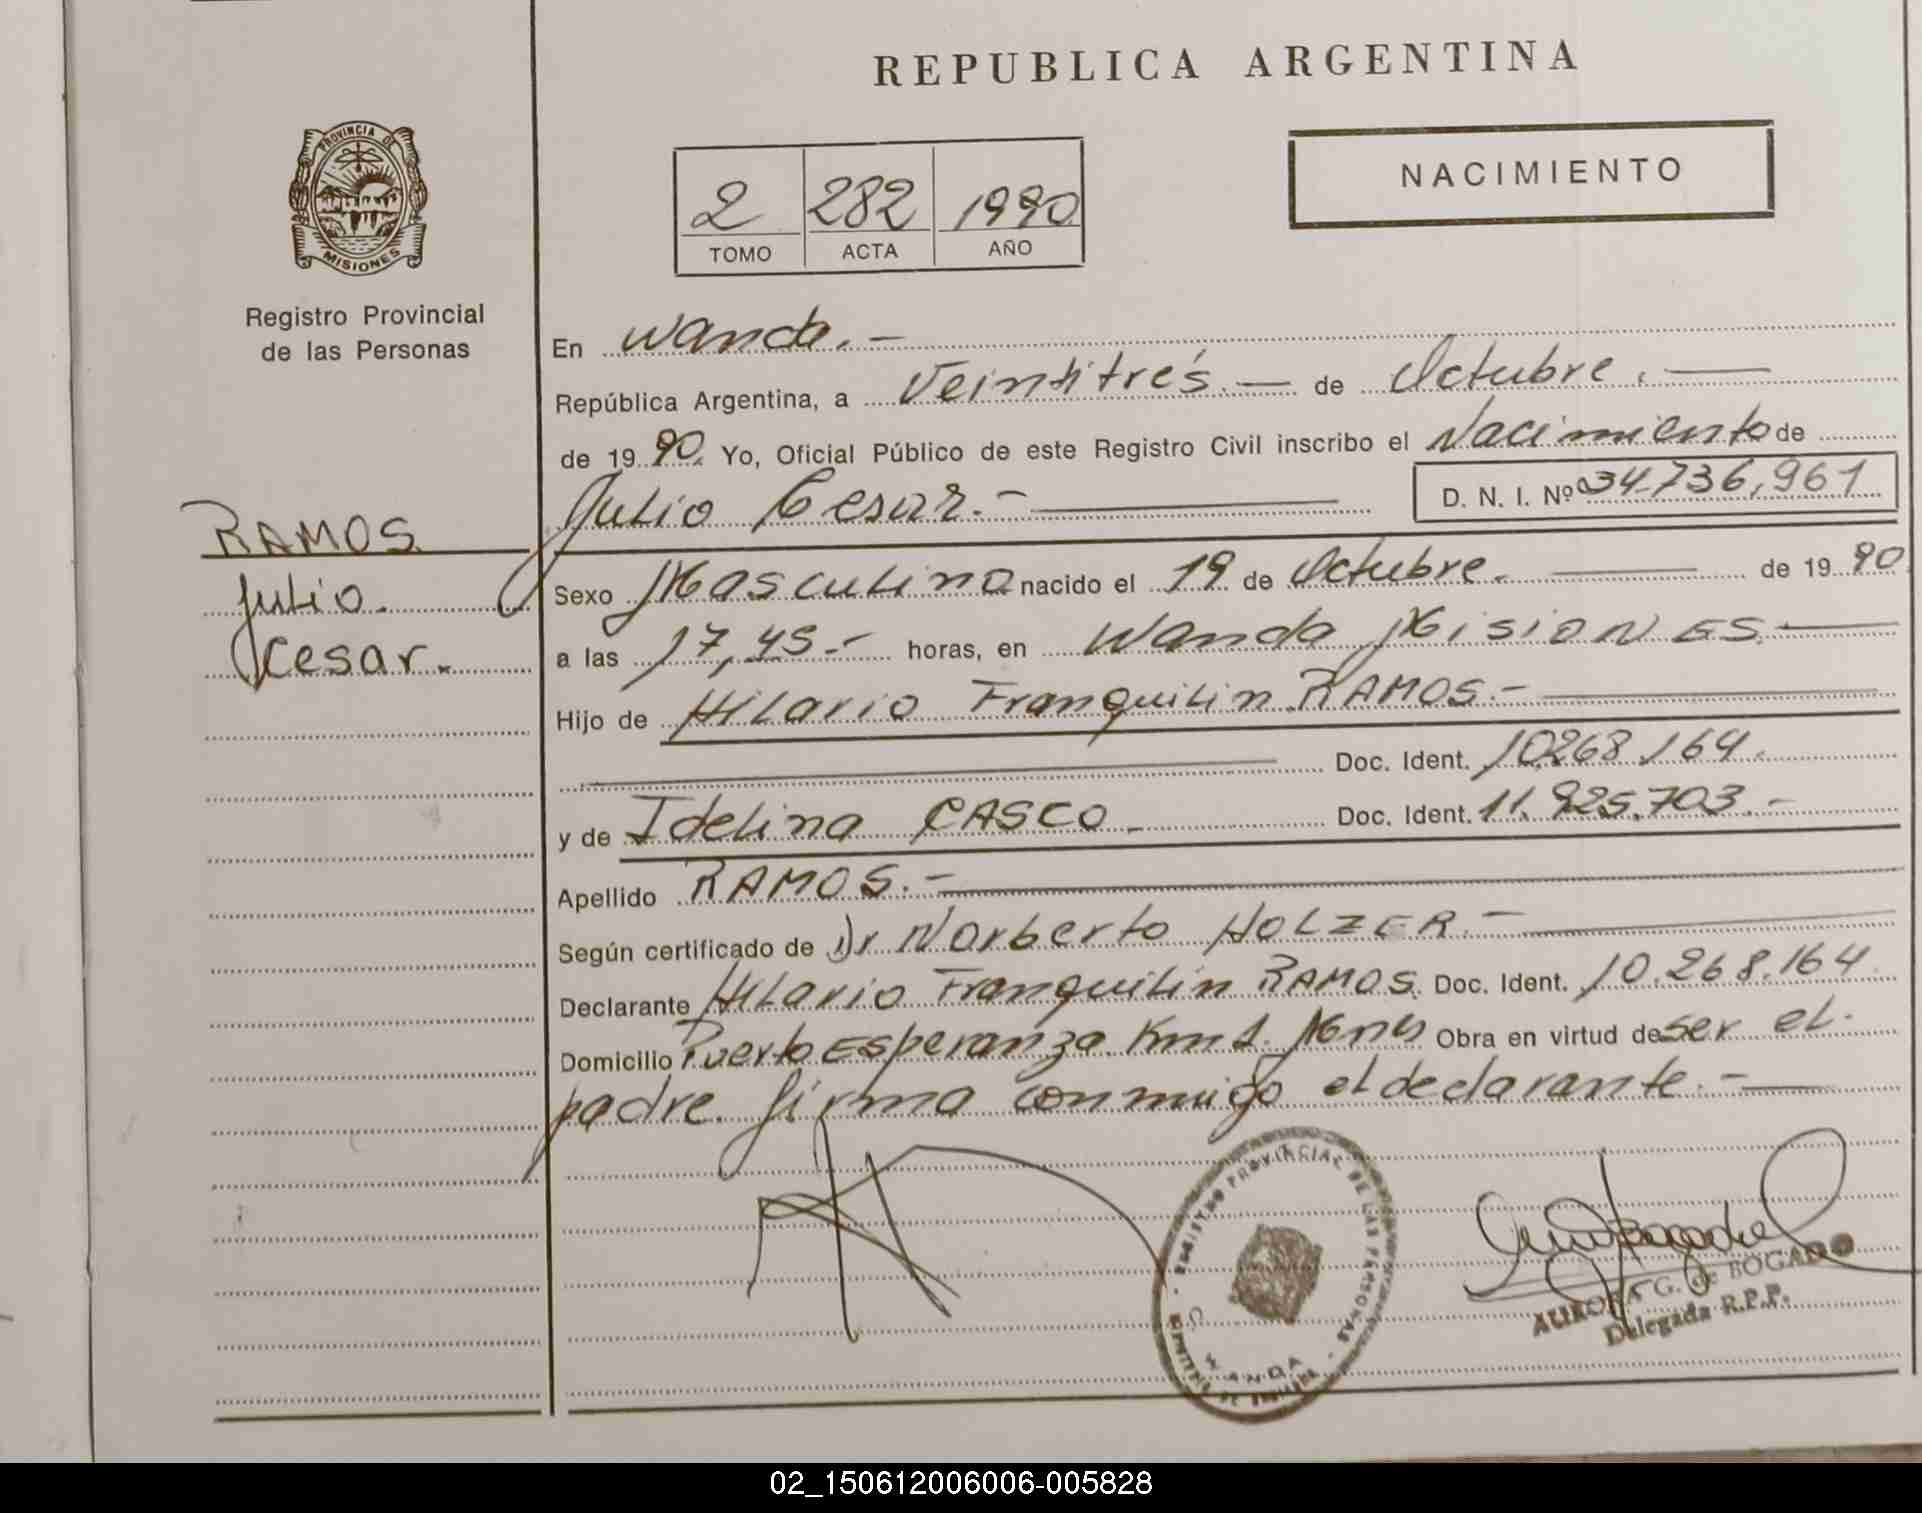 REPUBLICA ARGENTINA
PROVINCIA DE
MISIONES
Registro Provincial
de las Personas
2 282 1990
TOMO ACTA AÑO
NACIMIENTO
En Wanda.-
República Argentina, a Veintitrés.— de Octubre.—
de 1990. Yo, Oficial Público de este Registro Civil inscribo el Nacimiento de
Julio Cesar.- D. N. I. Nº 34.736,961
RAMOS
Julio.
Cesar.
Sexo Masculino nacido el 19 de Octubre.— de 1990
a las 17,45.- horas, en Wanda Misiones.—
Hijo de Hilario Franquilin RAMOS.-
Doc. Ident. 10.268.164.
y de Idelina CASCO.- Doc. Ident. 11.925.703.-
Apellido RAMOS.-
Según certificado de Dr Norberto HOLZER.-
Declarante Hilario Franquilin RAMOS. Doc. Ident. 10.268.164
Domicilio Puerto Esperanza Km 1. Mnes Obra en virtud de ser el.
padre. firma conmigo el declarante.-
REGISTRO PROVINCIAL DE LAS PERSONAS
WANDA
AURORA G. de BOGADO
Delegada R.P.P.
02_150612006006-005828